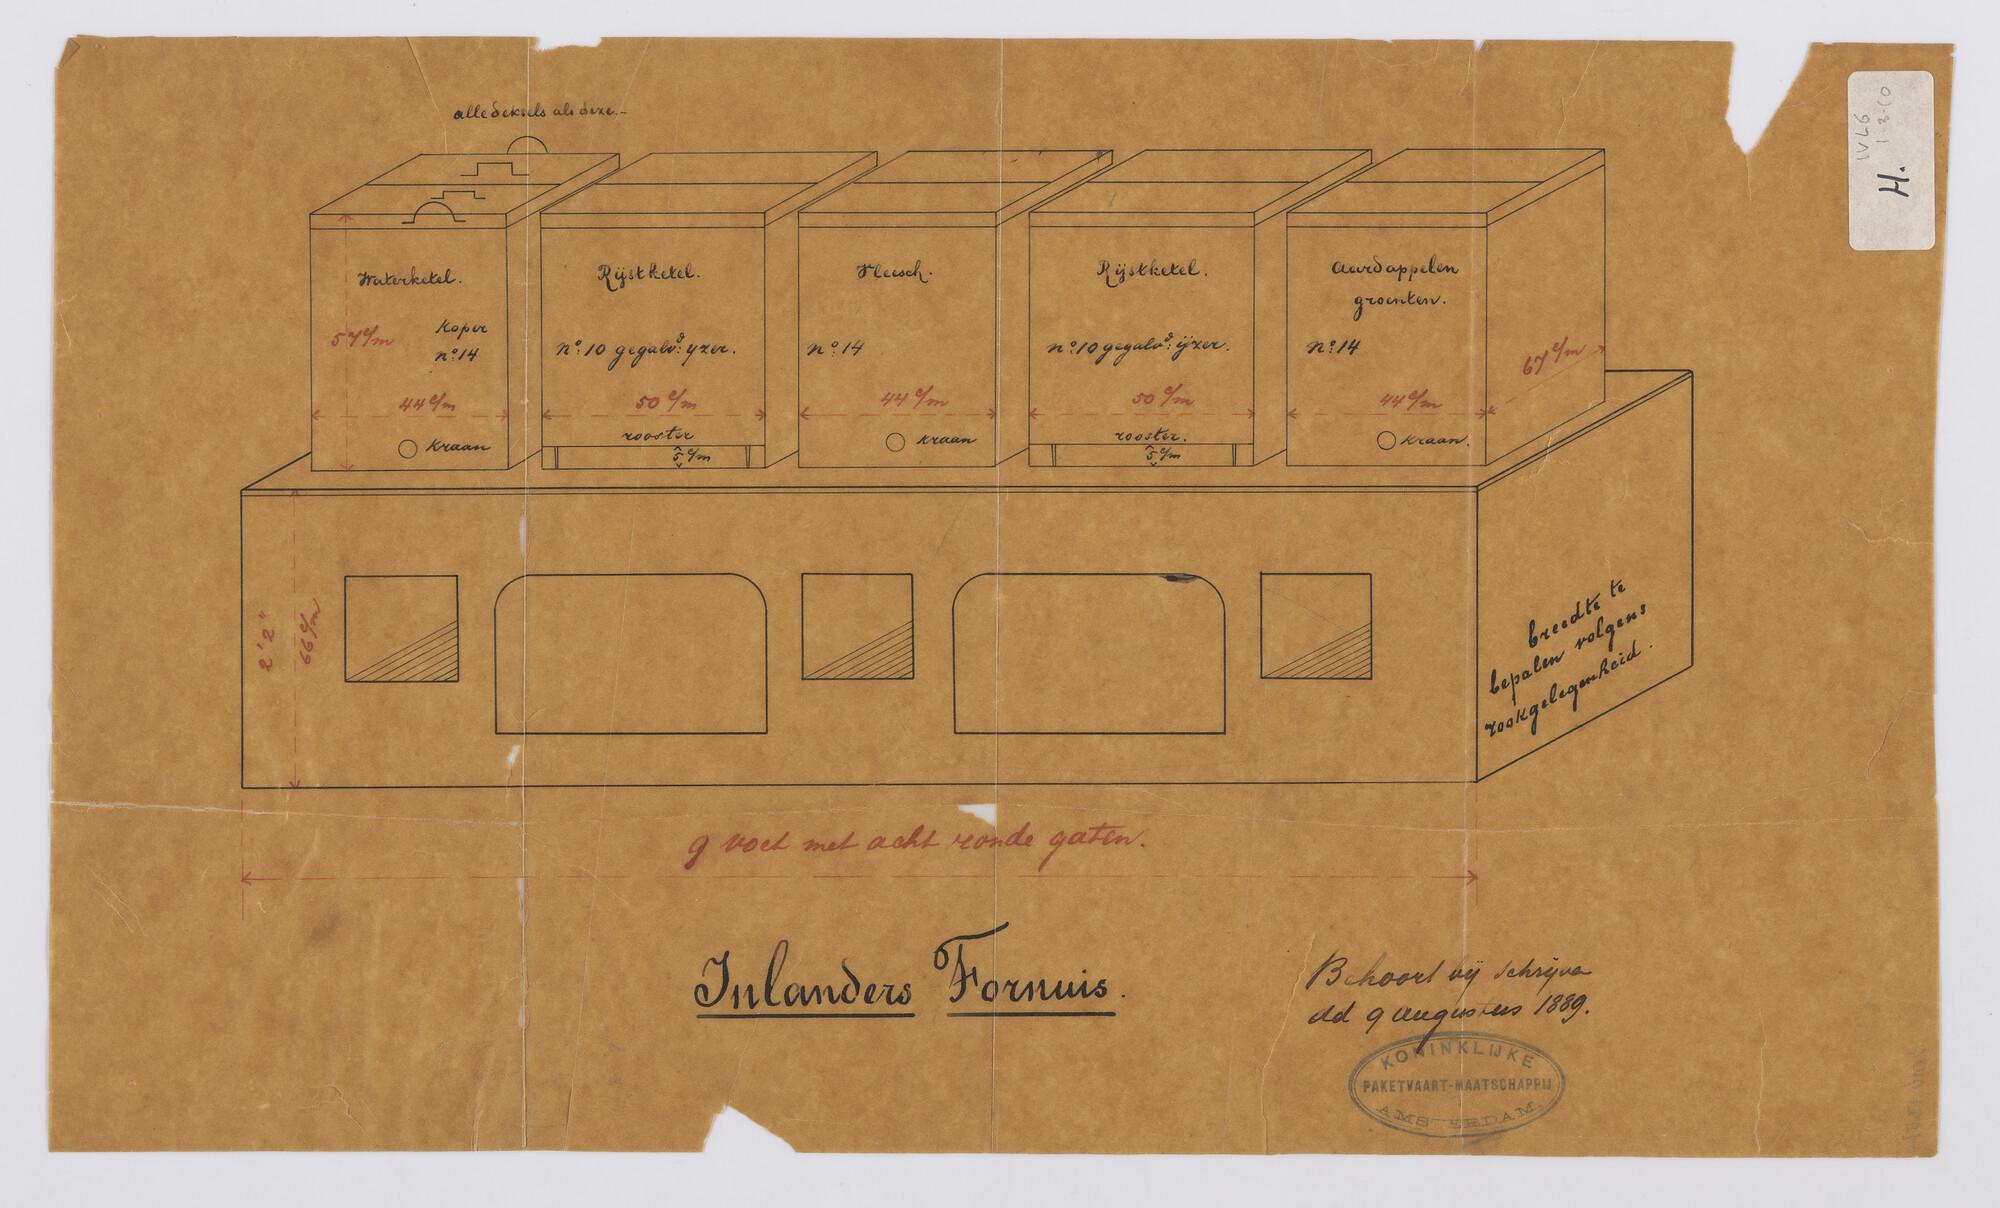 alle deksels als deze.-
Waterketel.
57 c/m
Koper
nº 14
44 c/m
Kraan
Rijstketel.
nº 10 gegalvd: yzer.
50 c/m
rooster
5 c/m
Vleesch.
nº 14
44 c/m
Kraan
Rijstketel.
nº 10 gegalvd: ijzer.
50 c/m
rooster.
5 c/m
Aardappelen
groenten.
nº 14
44 c/m
Kraan.
67 c/m
2' 2"
66 c/m
breedte te
bepalen volgens
rookgelegenheid.
9 voet met acht ronde gaten.
Inlanders Fornuis.
Behoort bij schrijven
dd 9 augustus 1889.
KONINKLIJKE
PAKETVAART-MAATSCHAPPIJ
AMSTERDAM
IV L6
1-3-10
H.